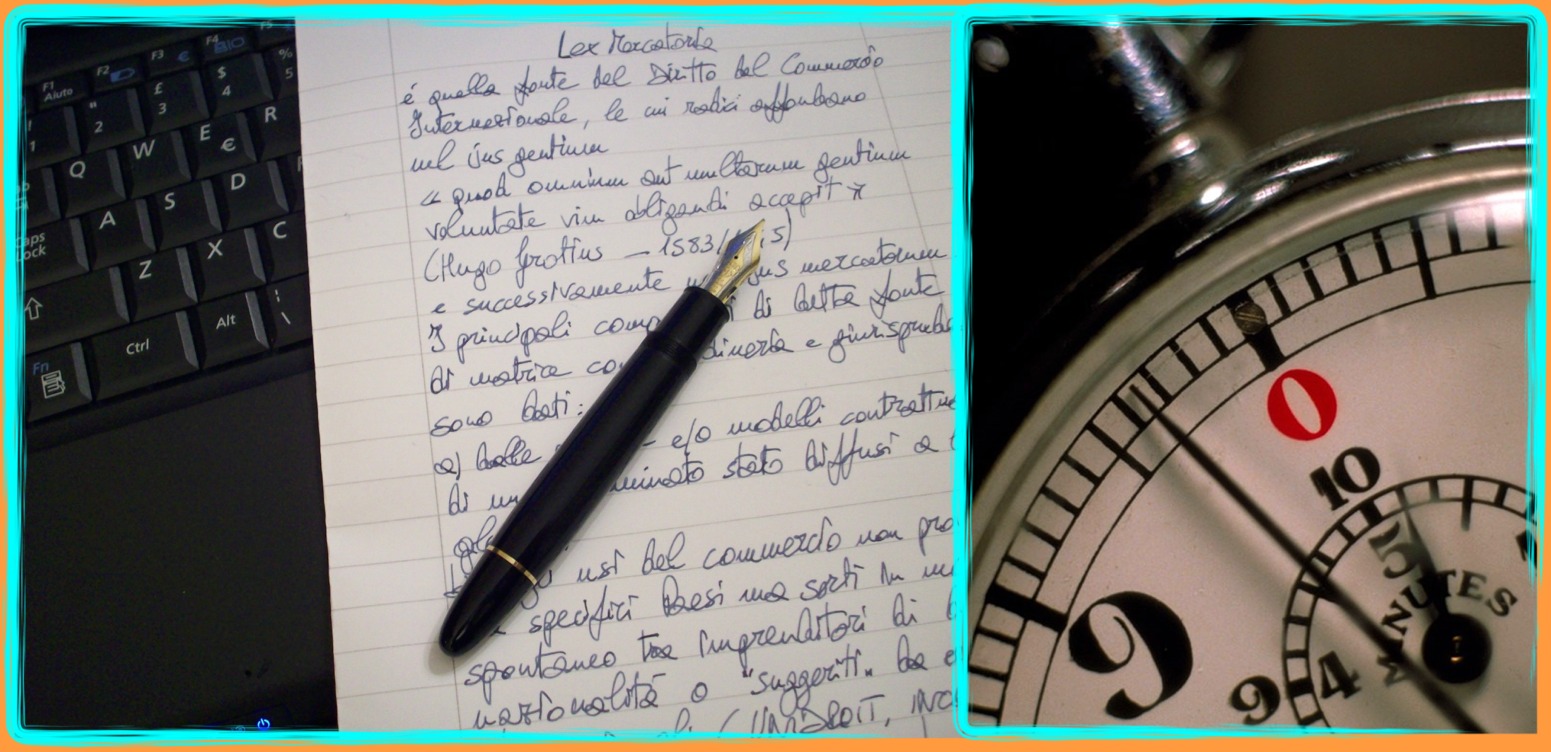 F1 Aiuto F2 F3 € F4 BIO F5
! 1 " 2 £ 3 $ 4 % 5
Q W E € R
A S D
Caps Lock
Z X C
Fn Ctrl Alt | \
Lex Mercatoria
é quella fonte del Diritto del Commercio
Internazionale, le cui radici affondano
nel jus gentium
« quod omnium aut multarum gentium
voluntate vim obligandi accepit »
(Hugo Grotius — 1583/ 5)
e successivamente jus mercatorum
I principali di detta fonte
di matrice e
sono dati:
a) dalle e/o modelli
di stato diffusi a
usi del commercio non
specifici Paesi ma sorti in
spontaneo tra imprenditori di
nazionalità o "suggeriti" da
(UNIDROIT,
0
10
5
MINUTES
9
9 4